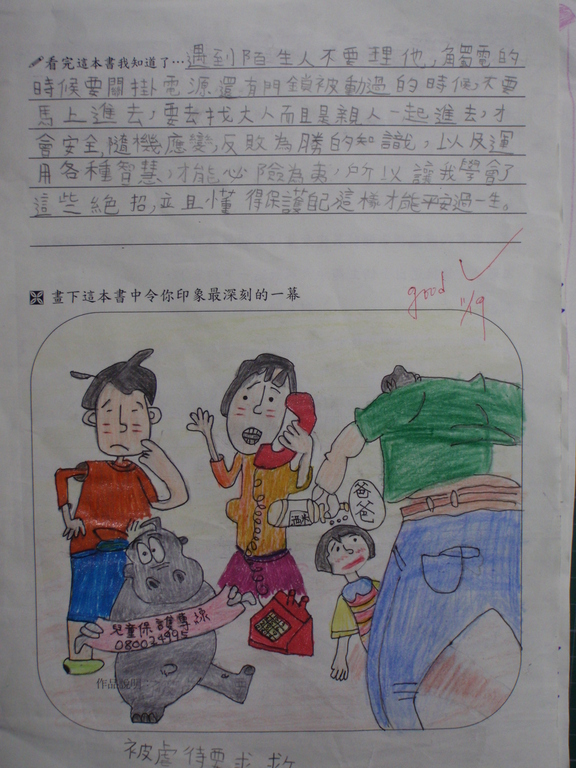 看完這本書我知道了…遇到陌生人不要理他,觸電的
時候要關掛電源還有門鎖被動過的時候,不要
馬上進去,要去找大人而且是親人一起進去,才
會安全隨機應變,反敗為勝的知識,以及運
用各種智慧,才能心險為夷,所以讓我學會了
這些絕招,立且懂得保護自己這樣才能平安過一生。
good
11/9
畫下這本書中令你印象最深刻的一幕
爸爸
兒童保護專線
080024995
作品說明
被虐待要求救